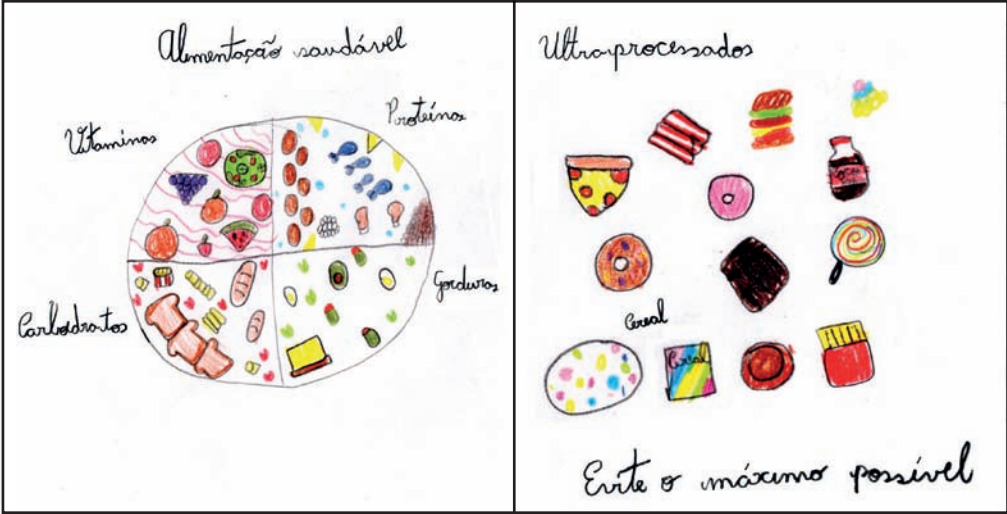 Alimentação saudável
Vitaminas
Proteínas
Carboidratos
Gorduras
Ultraprocessados
Coca
Cereal
Cereal
Evite o máximo possível